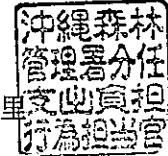 沖縄森林
管理署分任
支出負担
行為担当官
里